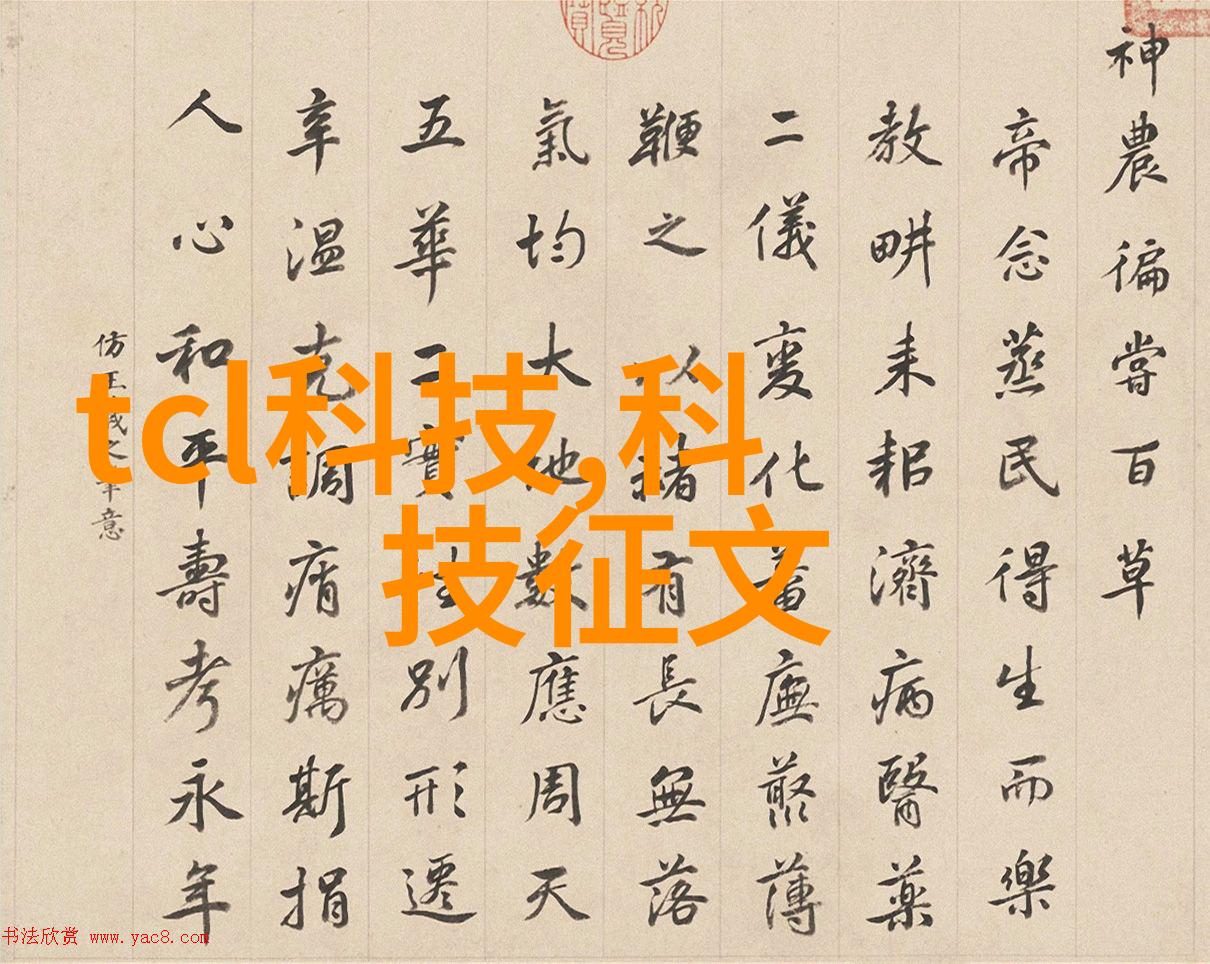 神農徧嘗百草
帝念蒸民得生而樂
教畊耒耜濟病醫藥
二儀變化蓄廡藂薄
鞭之以赭有長無落
氣均大地數應周天
五華二實 別形遷
辛溫克調痟癘斯捐
人心和平壽考永年
仿王 之筆意
tcl科技,科
技征文
书法欣赏 www.yac8.com